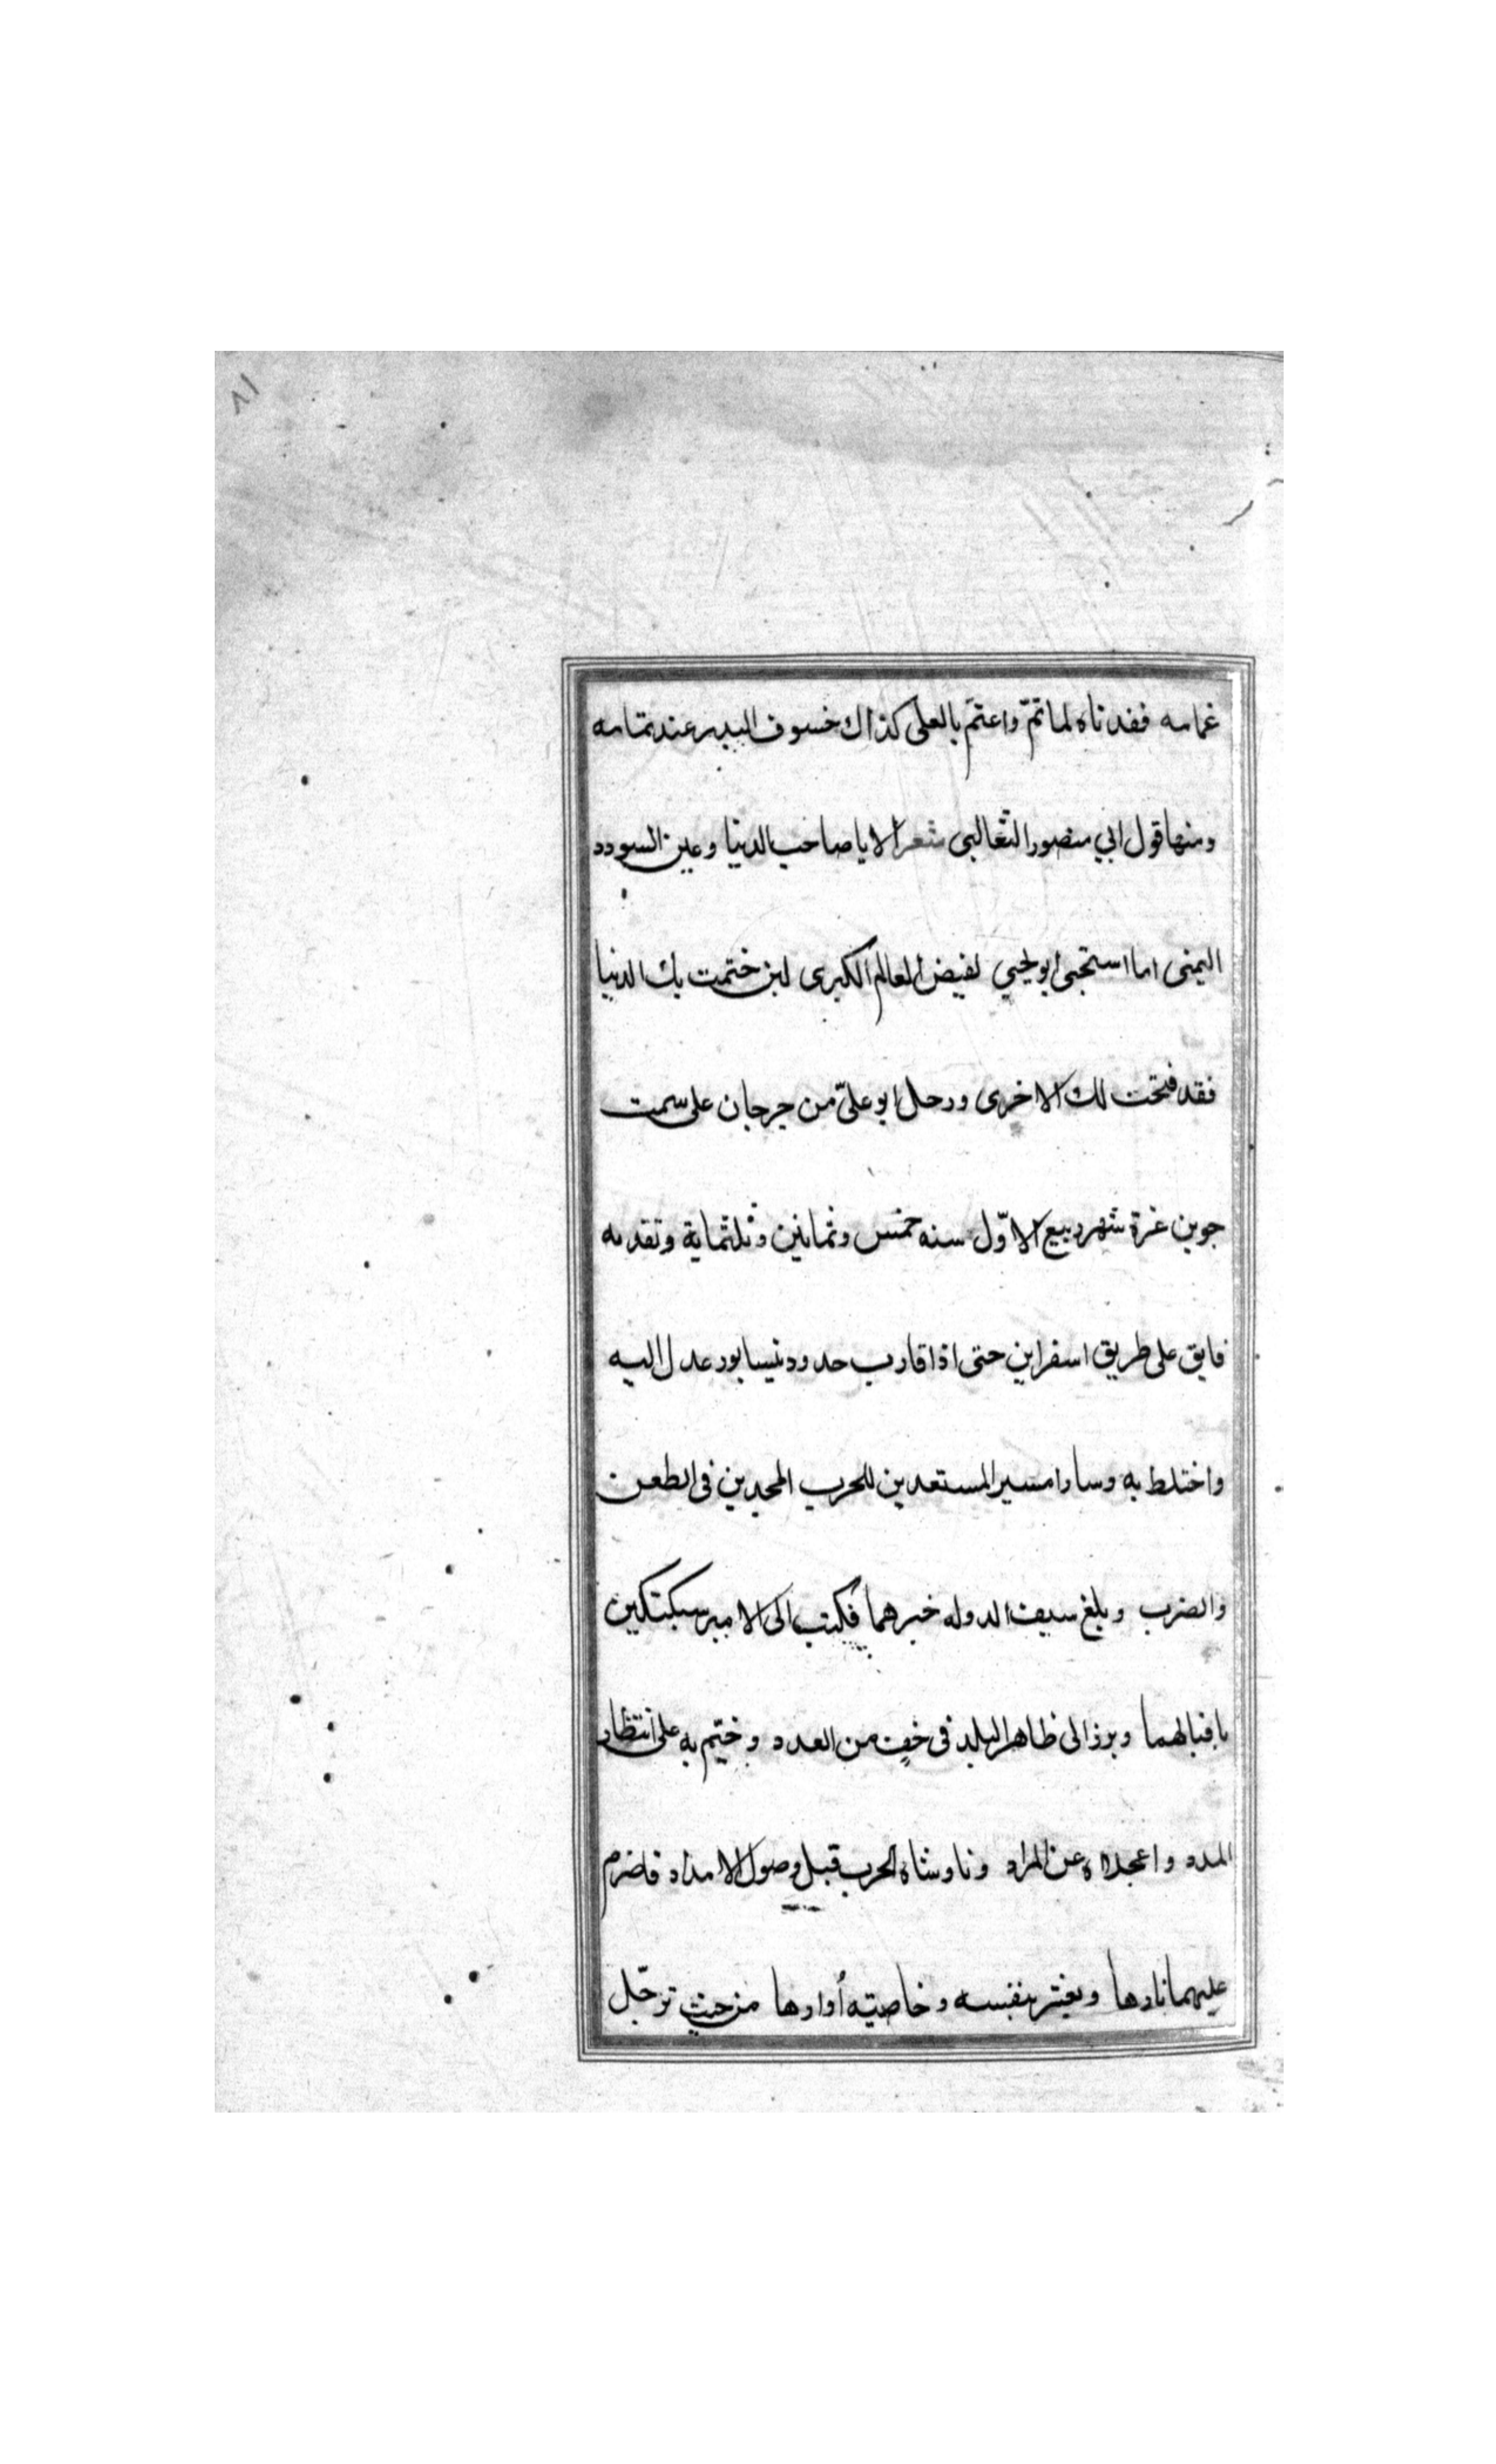 ٨١
غمامه ففقدناه لما تمّ واعتم بالعلى كذاك خسوف البدر عند تمامه
ومنها قول ابي منصور الثعالبى شعر الا يا صاحب الدنيا وعين السودد
اليمنى اما استحيى ابو يحيي لفيض العالم الكبرى لين ختمت بك الدنيا
فقد فتحت لك الاخرى ورحل ابو علىّ من جرجان على سمت
جوين غرة شهر ربيع الاوّل سنه خمس وثمانين وثلثماية وتقدمه
فايق على طريق اسفراين حتى اذا قارب حدود نيسابور عدل اليه
واختلط به وسارا مسير المستعدين للحرب المجدين فى الطعن
والضرب وبلغ سيف الدوله خبرهما فكتب الى الامير سبكتكين
باقبالهما وبرز الى ظاهر البلد فى خف من العدد وخيّم به على انتظار
المدد واعجلاه عن المراد وناوشاه الحرب قبل وصول الامداد فاضرم
عليهما نارها بنفسه وخاصيته أوارها من حيث ترجّل